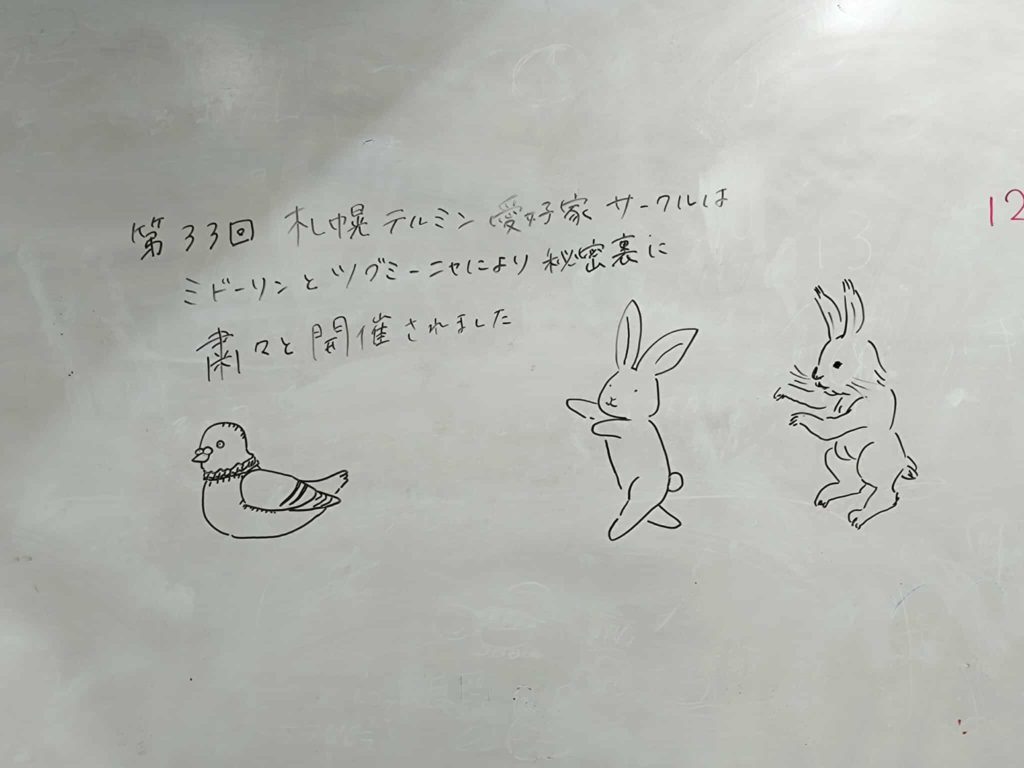 第33回 札幌テルミン愛好家サークルは
ミドーリンとツグミーニャにより秘密裏に
粛々と開催されました
12